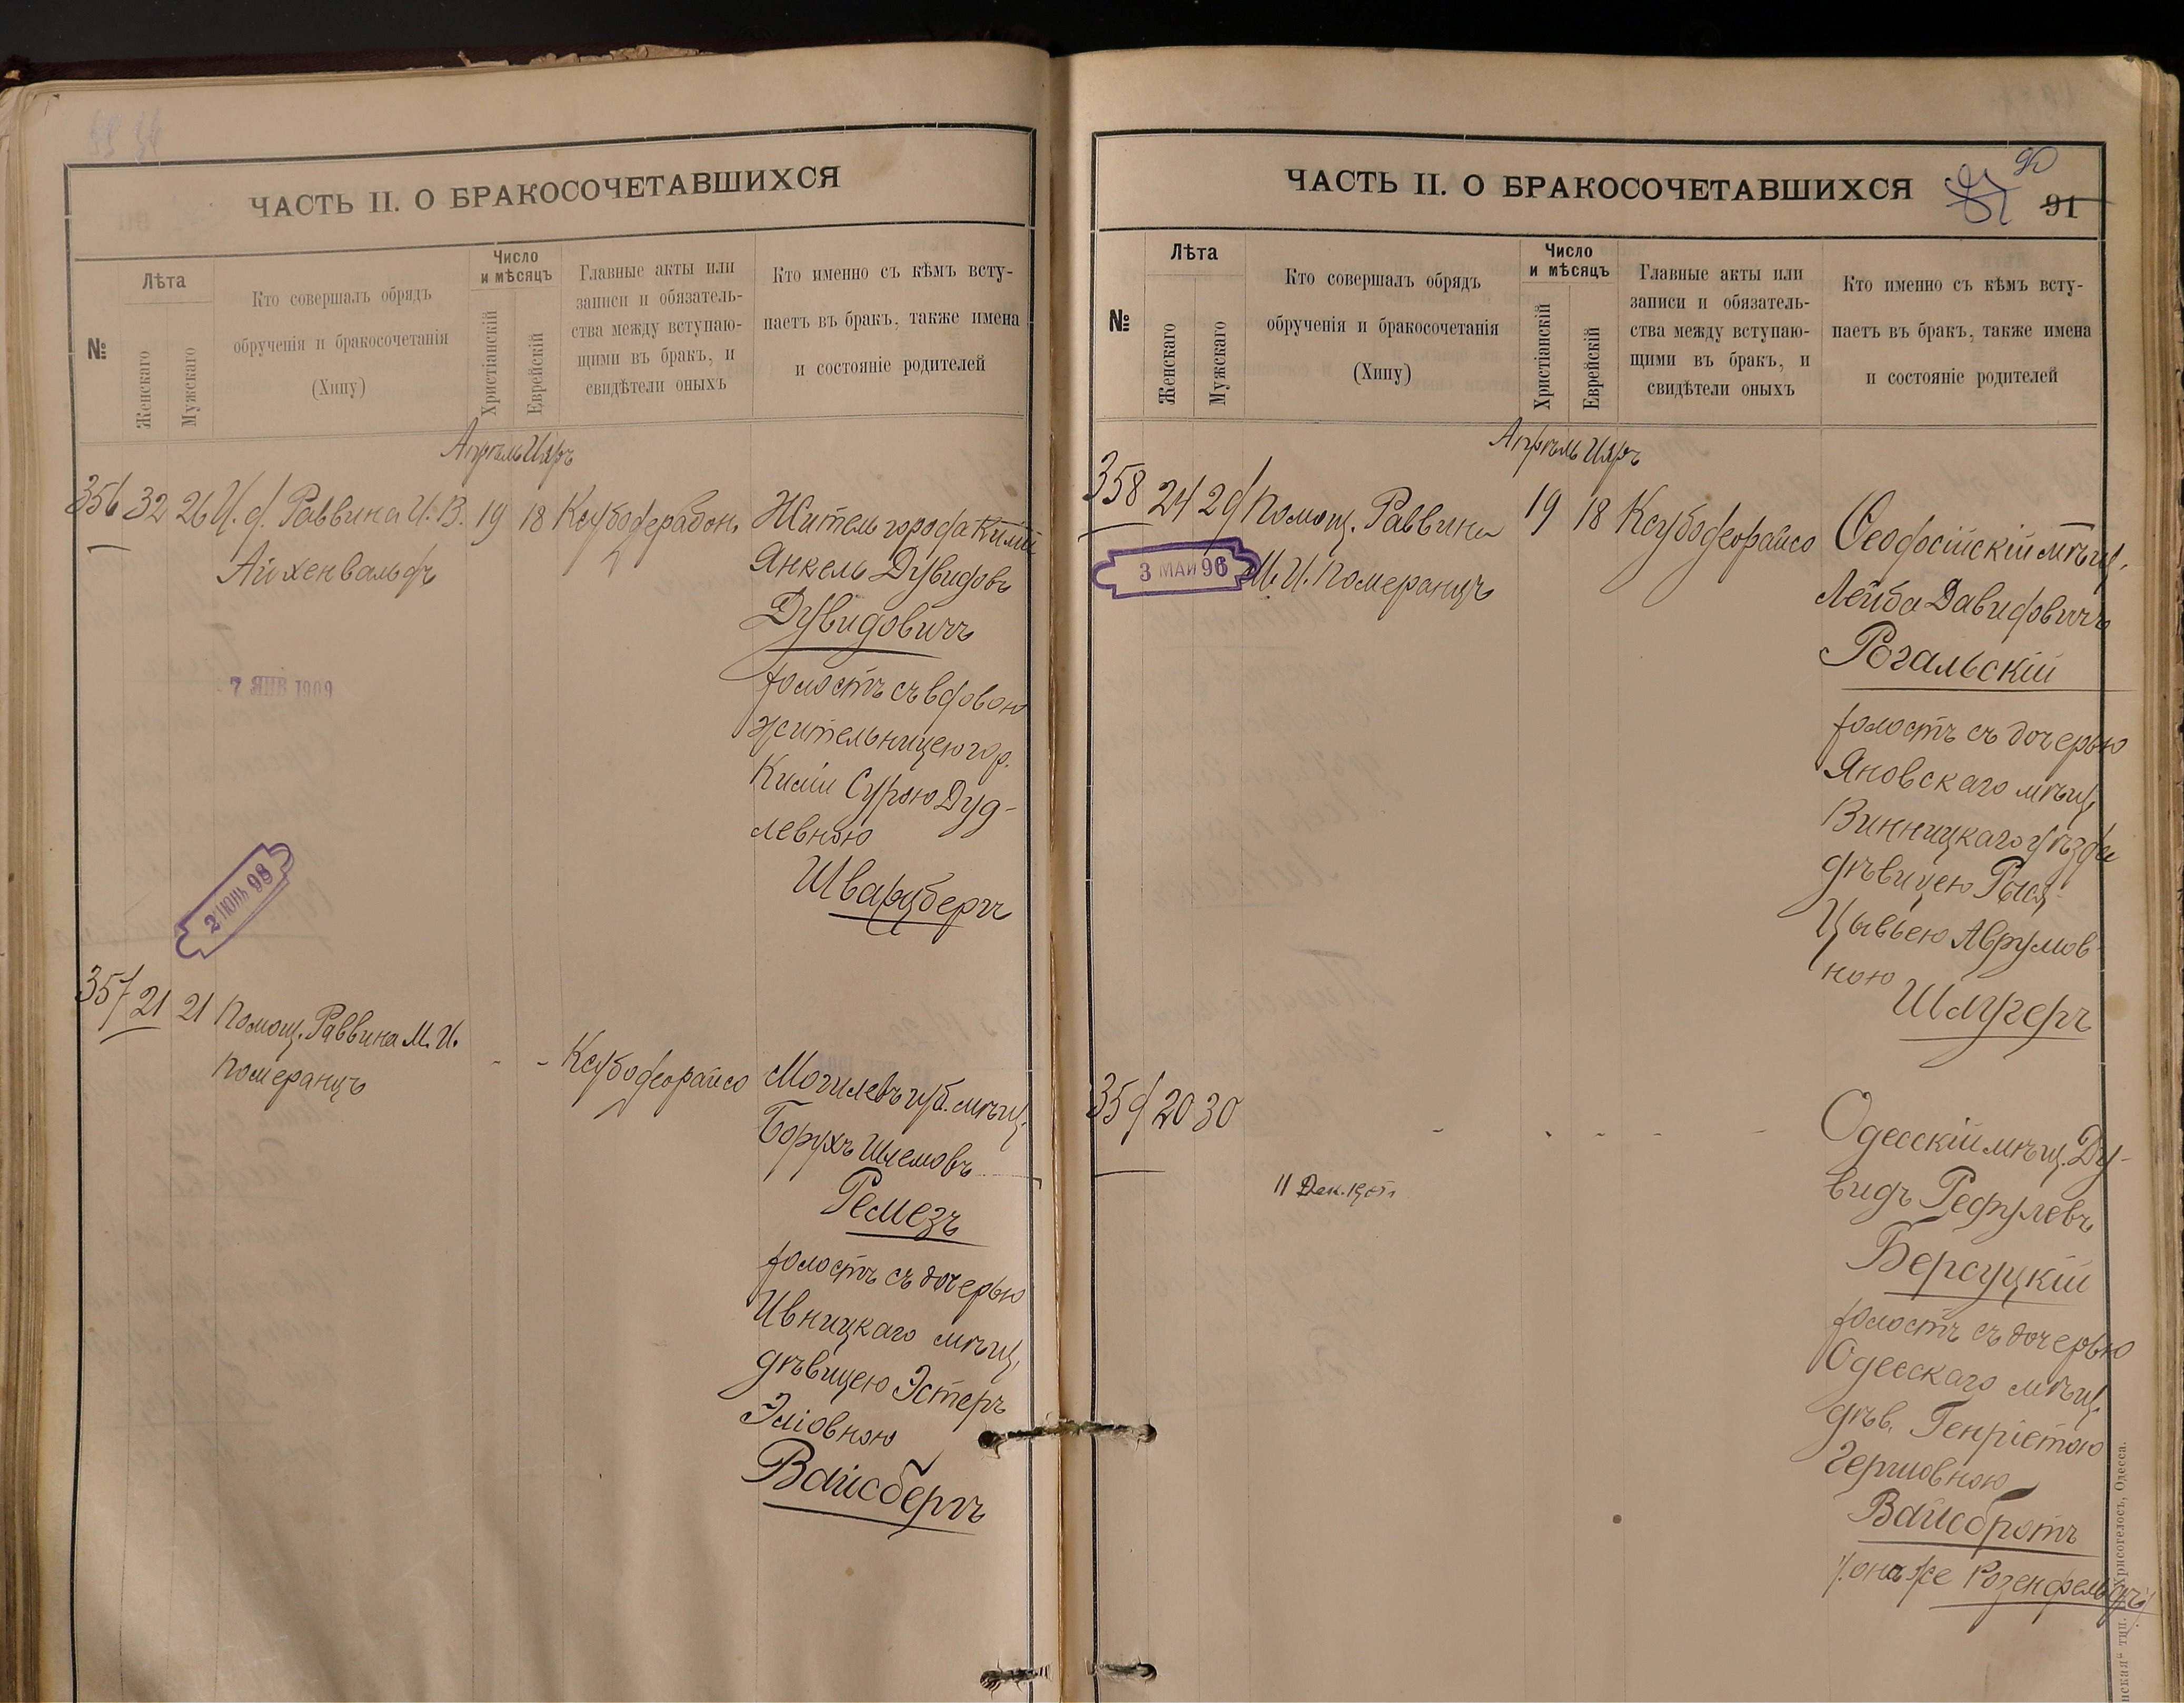 ЧАСТЬ II. О БРАКОСОЧЕТАВШИХСЯ
№
Лѣта
Женскаго
Мужскаго
Кто совершалъ обрядъ
обрученія и бракосочетанія
(Хипу)
Число
и мѣсяцъ
Христіанскій
Еврейскій
Главные акты или
записи и обязатель-
ства между вступаю-
щими въ бракъ, и
свидѣтели оныхъ
Кто именно съ кѣмъ всту-
паетъ въ бракъ, также имена
и состояніе родителей
Апрѣль Ияръ
356 32 26 И. д. Раввина И. В. 19 18
Айхенвальдъ
Житель города Киліи
Янкель Дувидовъ
Дувидовичъ
холостъ съ вдовою
жительницею гор.
Киліи Сурою Дуд-
левною
Шварцбергъ
7 ЯНВ 1909
2 ІЮНЬ 98
357 21 21 Помощ. Раввина М. И.
Померанцъ
- - Ксубодеорайсо
Могилевъ губ. мѣщ.
Борухъ Шлемовъ
Ремезъ
холостъ съ дочерью
Ивницкаго мѣщ.
дѣвицею Эстеръ
Эліовною
Вайсбергъ
ЧАСТЬ II. О БРАКОСОЧЕТАВШИХСЯ
90
91
№
Лѣта
Женскаго
Мужскаго
Кто совершалъ обрядъ
обрученія и бракосочетанія
(Хипу)
Число
и мѣсяцъ
Христіанскій
Еврейскій
Главные акты или
записи и обязатель-
ства между вступаю-
щими въ бракъ, и
свидѣтели оныхъ
Кто именно съ кѣмъ всту-
паетъ въ бракъ, также имена
и состояніе родителей
Апрѣль Ияръ
358 24 29 Помощ. Раввина 19 18 Ксубодеорайсо
М. И. Померанцъ
3 МАЙ 96
Ѳеодосійскій мѣщ.
Лейба Давидовичъ
Рогальскій
холостъ съ дочерью
Яновскаго мѣщ.
Винницкаго уѣзда
дѣвицею Рися-
Цывьею Аврумов-
ною
Шлугеръ
359 20 30
- - - - -
11 Дек.
Одесскій мѣщ. Ду-
видъ Рефулевъ
Берсуцкій
холостъ съ дочерью
Одесскаго мѣщ.
дѣв. Генріетою
Гершовною
Вайсбротъ
/: она же Розенфельдъ :/